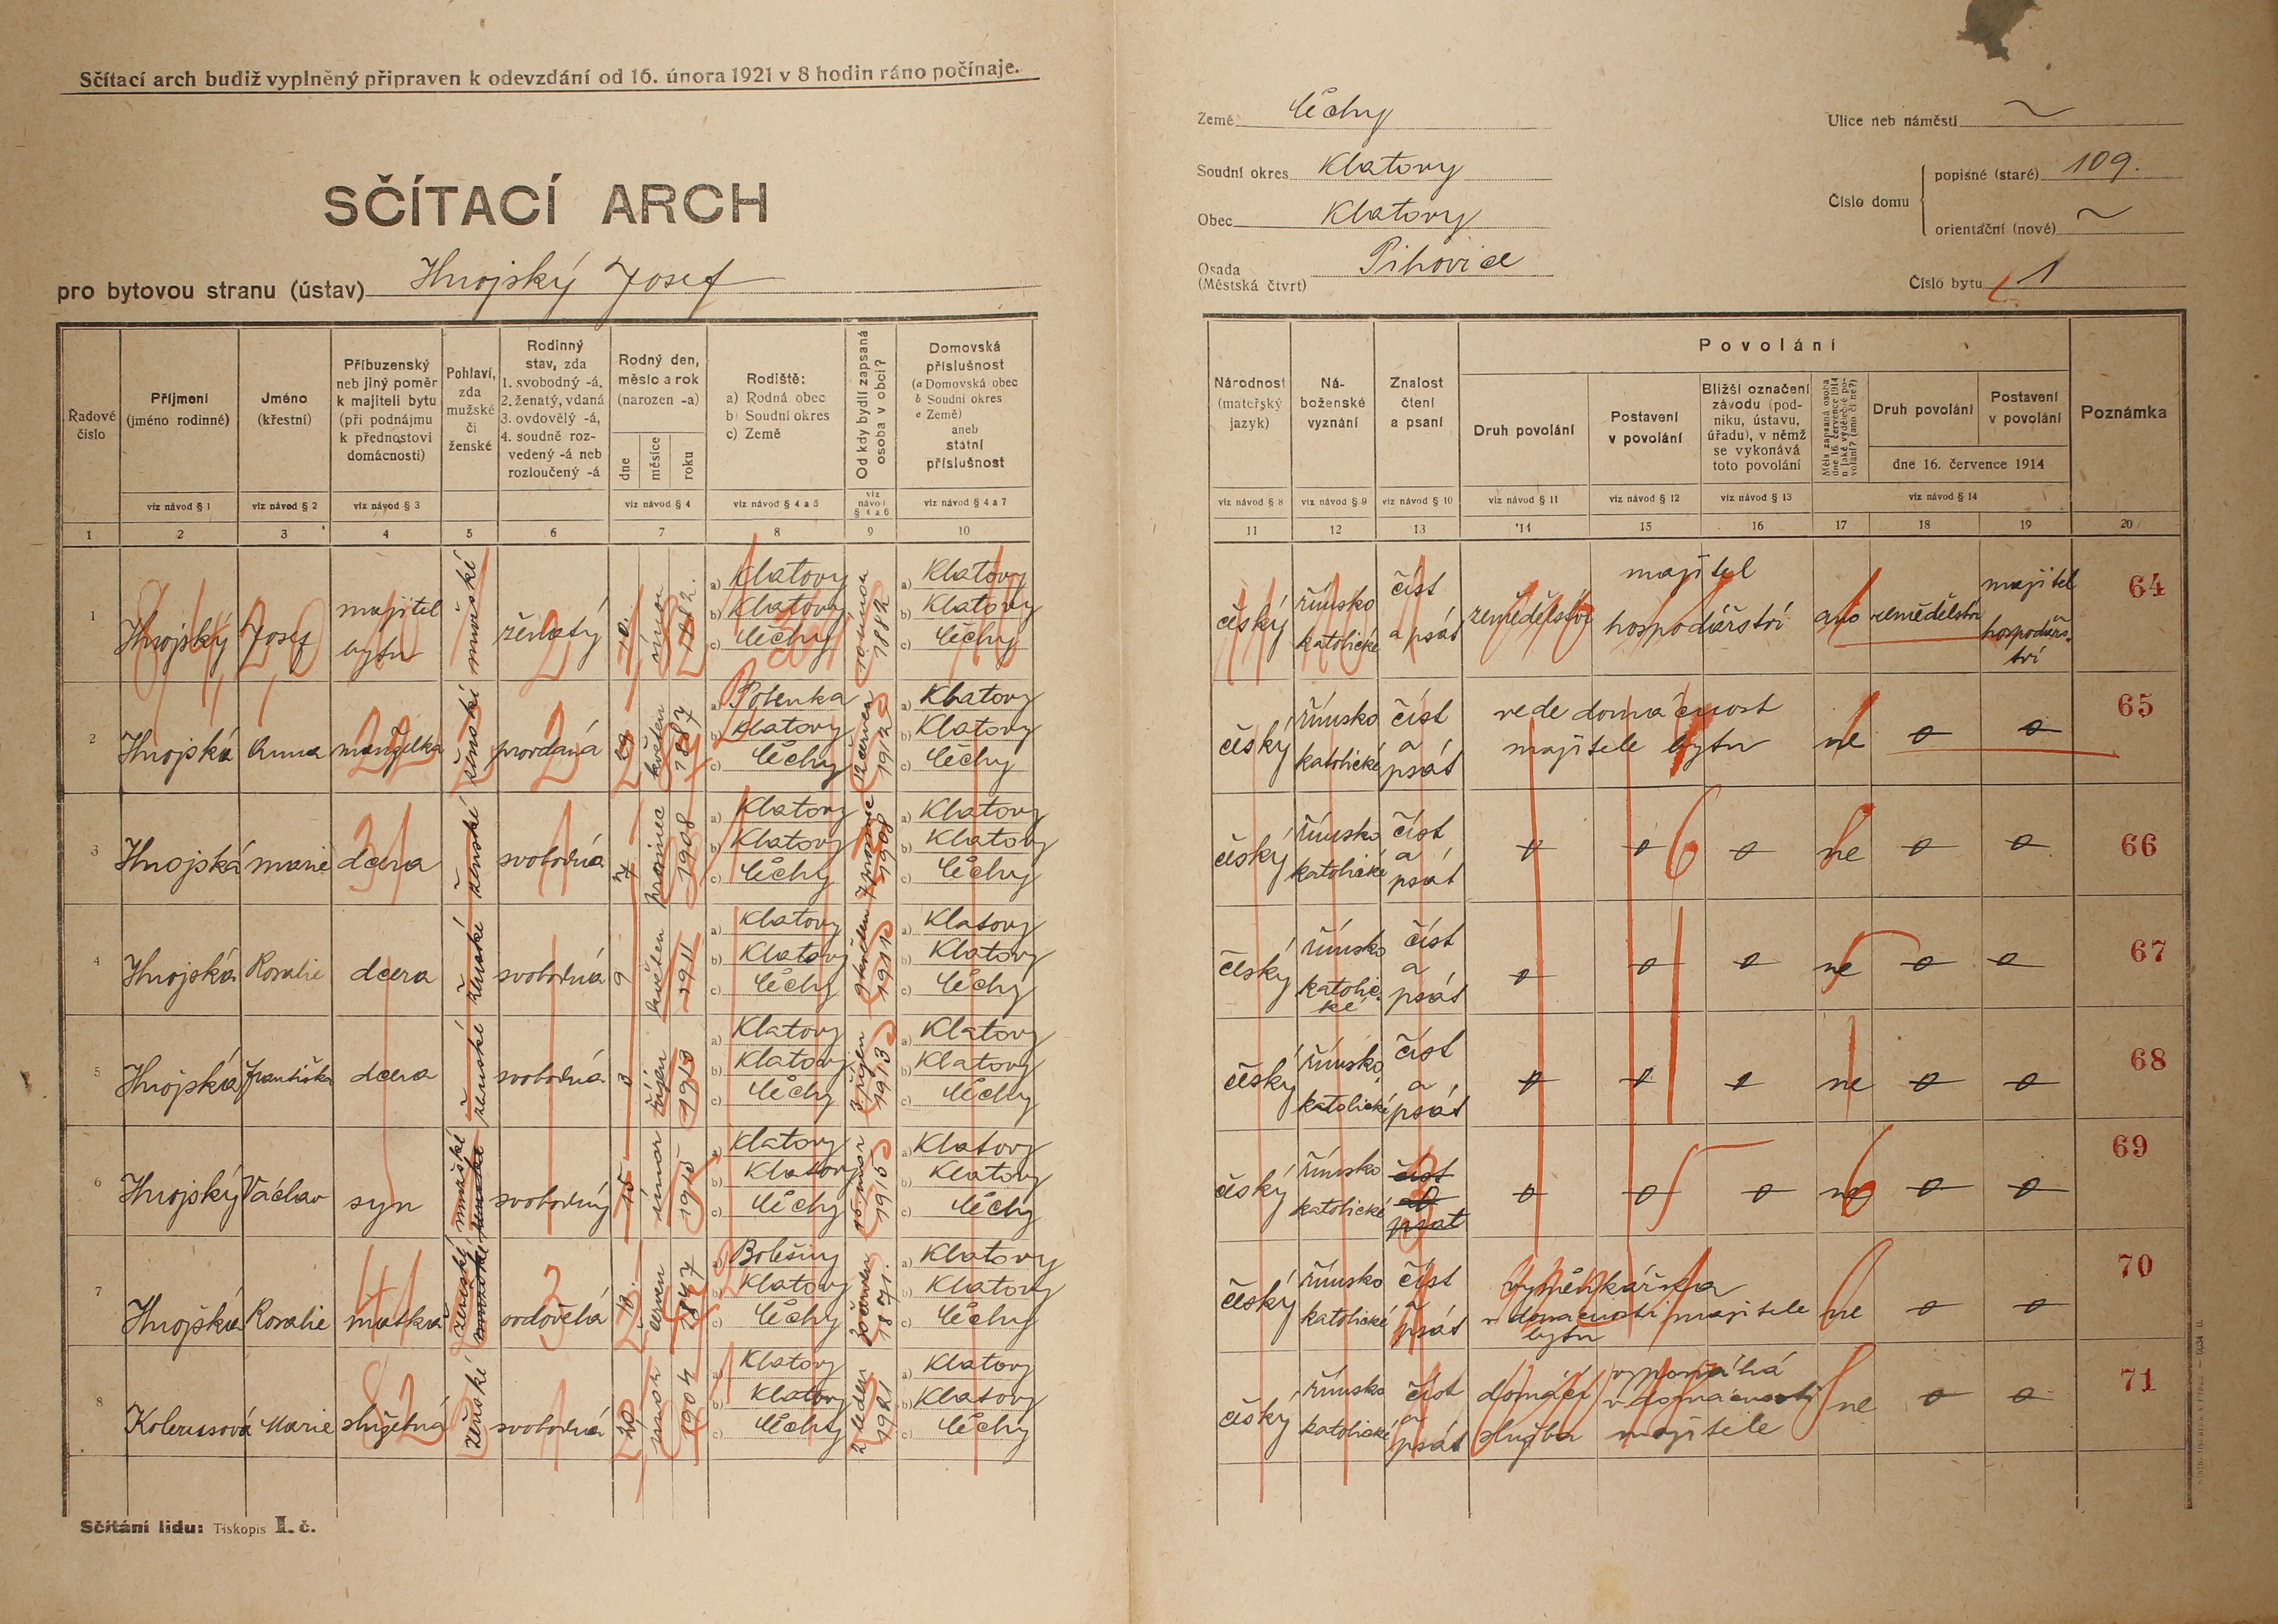 Sčítací arch budiž vyplněný připraven k odevzdání od 16. února 1921 v 8 hodin ráno počínaje.
SČÍTACÍ ARCH
pro bytovou stranu (ústav) Hnojský Josef
Země Čechy
Soudní okres Klatovy
Obec Klatovy
Osada Pihovice
(Městská čtvrt)
Ulice neb náměstí ~
Číslo domu
popisné (staré) 109.
orientační (nové) ~
Číslo bytu 1
Řadové číslo
Příjmení (jméno rodinné)
Jméno (křestní)
Příbuzenský neb jiný poměr k majiteli bytu (při podnájmu k přednostovi domácnosti)
Pohlaví, zda mužské či ženské
Rodinný stav, zda 1. svobodný -á, 2. ženatý, vdaná 3. ovdovělý -á, 4. soudně rozvedený -á neb rozloučený -á
Rodný den, měsíc a rok (narozen -a)
dne měsíce roku
Rodiště:
a) Rodná obec
b) Soudní okres
c) Země
Od kdy bydlí zapsaná osoba v obci?
Domovská příslušnost
(a Domovská obec
b Soudní okres
c Země)
aneb státní příslušnost
viz návod § 1 viz návod § 2 viz návod § 3 viz návod § 4 viz návod § 4 a 5 viz návod § 4 a 6 viz návod § 4 a 7
1 2 3 4 5 6 7 8 9 10
Národnost (mateřský jazyk)
Náboženské vyznání
Znalost čtení a psaní
Povolání
Druh povolání
Postavení v povolání
Bližší označení závodu (podniku, ústavu, úřadu), v němž se vykonává toto povolání
Měla zapsaná osoba dne 16. července 1914 nějaké výdělečné povolání? (ano či ne?)
Druh povolání
Postavení v povolání
dne 16. července 1914
Poznámka
viz návod § 8 viz návod § 9 viz návod § 10 viz návod § 11 viz návod § 12 viz návod § 13 viz návod § 14
11 12 13 14 15 16 17 18 19 20
1 Hnojský Josef majitel bytu mužské ženatý 10. únor 1882. a) Klatovy b) Klatovy c) Čechy 10 února 1882 a) Klatovy b) Klatovy c) Čechy český římsko katolické číst a psát zemědělství majitel hospodářství ano zemědělství majitel hospodářství 64
2 Hnojská Anna manželka ženské provdaná 29 květen 1887 a) Polenka b) Klatovy c) Čechy 12 červen 1912 a) Klatovy b) Klatovy c) Čechy český římsko katolické číst a psát vede domácnost majitele bytu ne 0 0 65
3 Hnojská Marie dcera ženské svobodná 7 prosinec 1908 a) Klatovy b) Klatovy c) Čechy 7 prosinec 1908 a) Klatovy b) Klatovy c) Čechy český římsko katolické číst a psát 0 0 0 ne 0 0 66
4 Hnojská Rosalie dcera ženské svobodná 9 květen 1911 a) Klatovy b) Klatovy c) Čechy 9 květen 1911 a) Klatovy b) Klatovy c) Čechy český římsko katolické číst a psát 0 0 0 ne 0 0 67
5 Hnojská Františka dcera ženské svobodná 3 říjen 1913 a) Klatovy b) Klatovy c) Čechy 3 říjen 1913 a) Klatovy b) Klatovy c) Čechy český římsko katolické číst a psát 0 0 0 ne 0 0 68
6 Hnojský Václav syn mužské ženské svobodný 15 únor 1915 a) Klatovy b) Klatovy c) Čechy 15 únor 1915 a) Klatovy b) Klatovy c) Čechy český římsko katolické číst a psat 0 0 0 ne 0 0 69
7 Hnojská Rosalie matka ženské mužské ovdovělá červen 1847 a) Bolešiny b) Klatovy c) Čechy červen 1871. a) Klatovy b) Klatovy c) Čechy český římsko katolické číst a psát výměnkářka v domácnosti majitele bytu ne 0 0 70
8 Marie služebná ženské svobodná 20 únor 1904 a) Klatovy b) Klatovy c) Čechy 2 leden 1921 a) Klatovy b) Klatovy c) Čechy český římsko katolické číst a psát domácí služba vypomáhá v domácnosti majitele ne 0 0 71
Sčítání lidu: Tiskopis I. č.